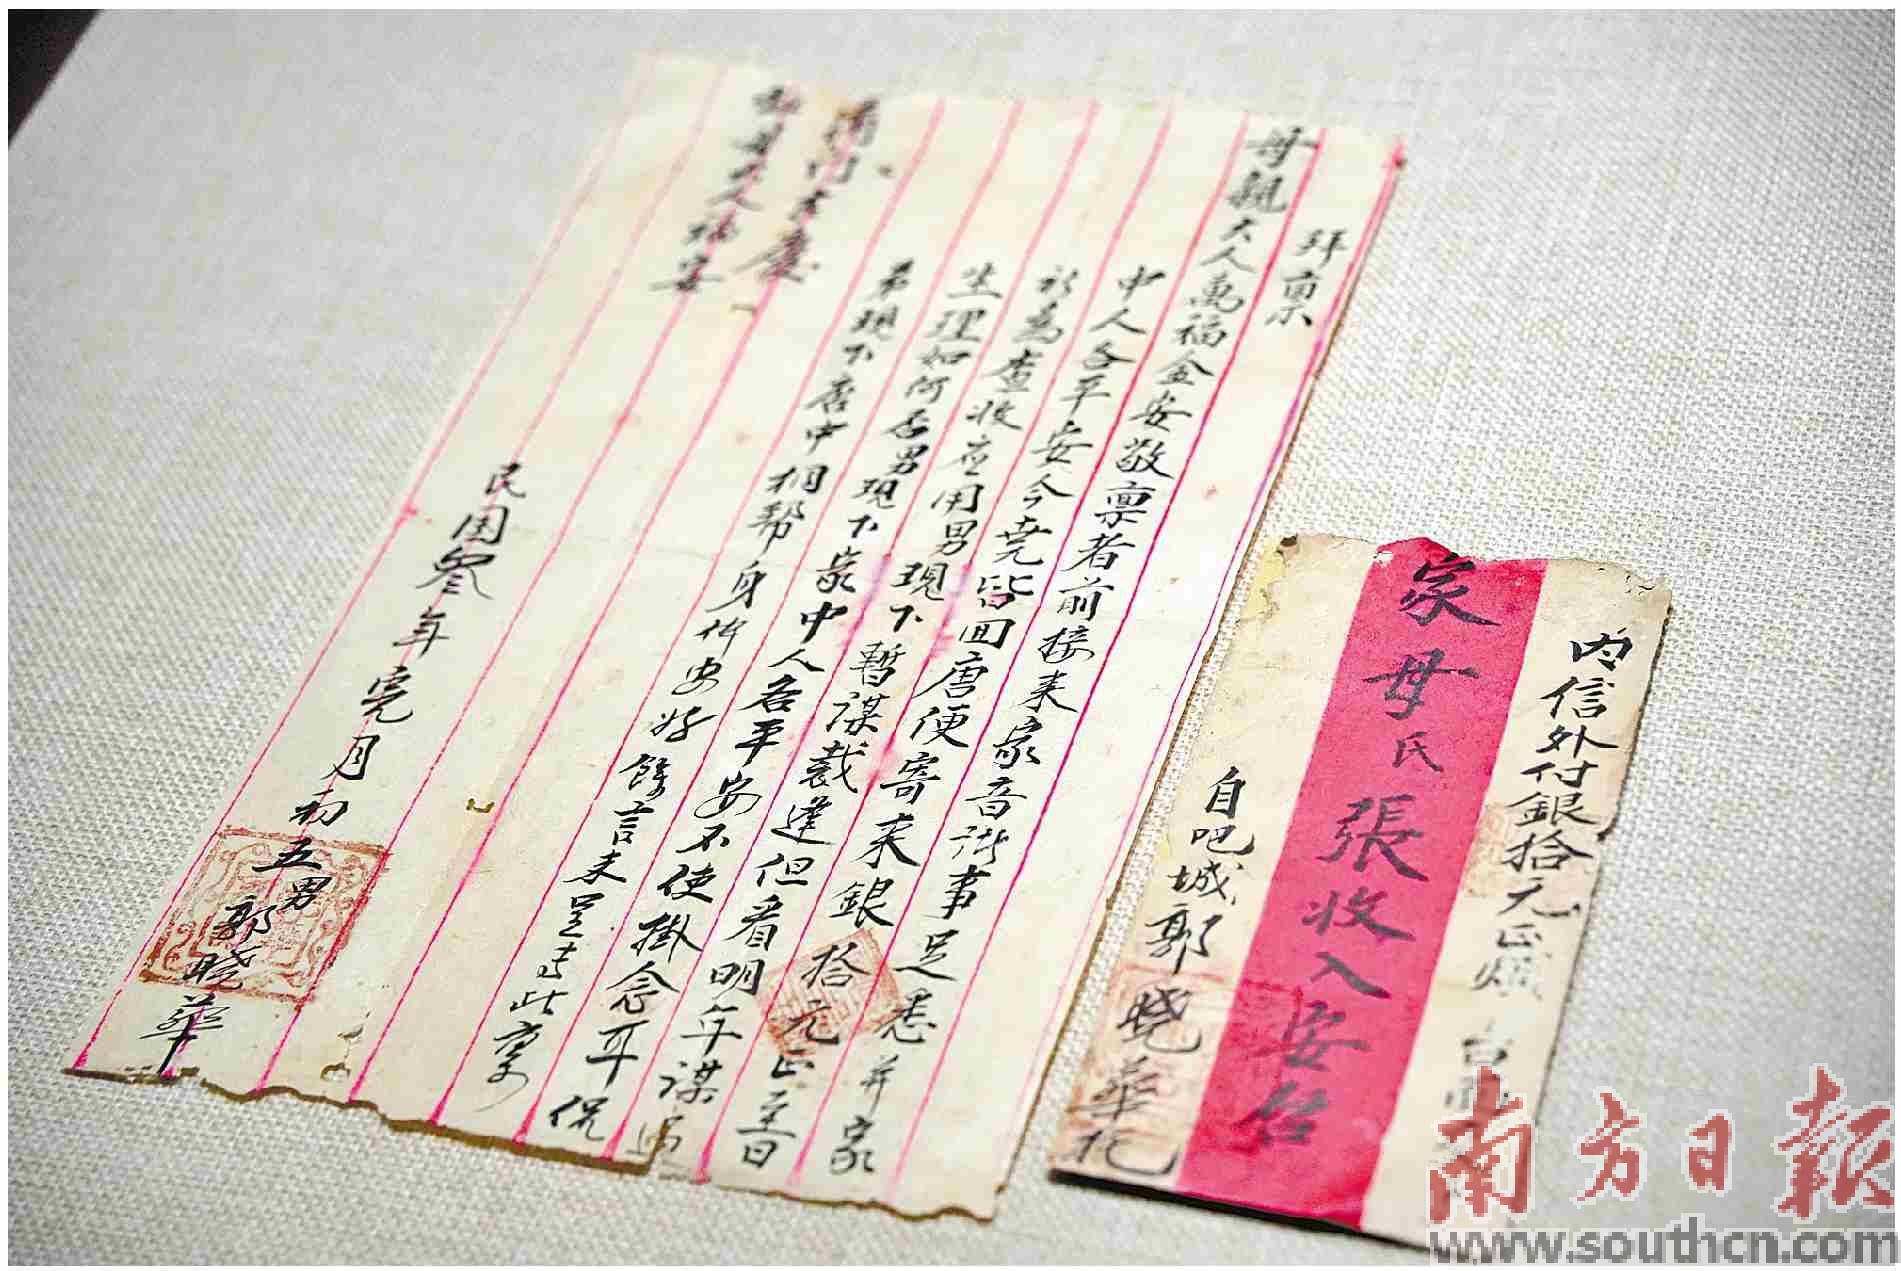 拜稟
母親大人萬福金安敬稟者前接来家音諸事足悉并家
中人各平安今堯皆回唐便寄来銀拾元正至日
祈為查收應用男現下暫謀裁逢但看明年謀
生理如何否男現下家中人各平安不使掛念耳
弟現下店中相幫身体安好餘言未呈專此稟
福門吉慶
母大人福安
民国叁年 月初五男郭曉華
内信外付銀拾元正
家母氏張收入安啟
自吧城郭曉華托
南方日報
www.southcn.com